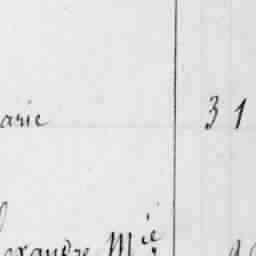 arie 31
exandre Mie